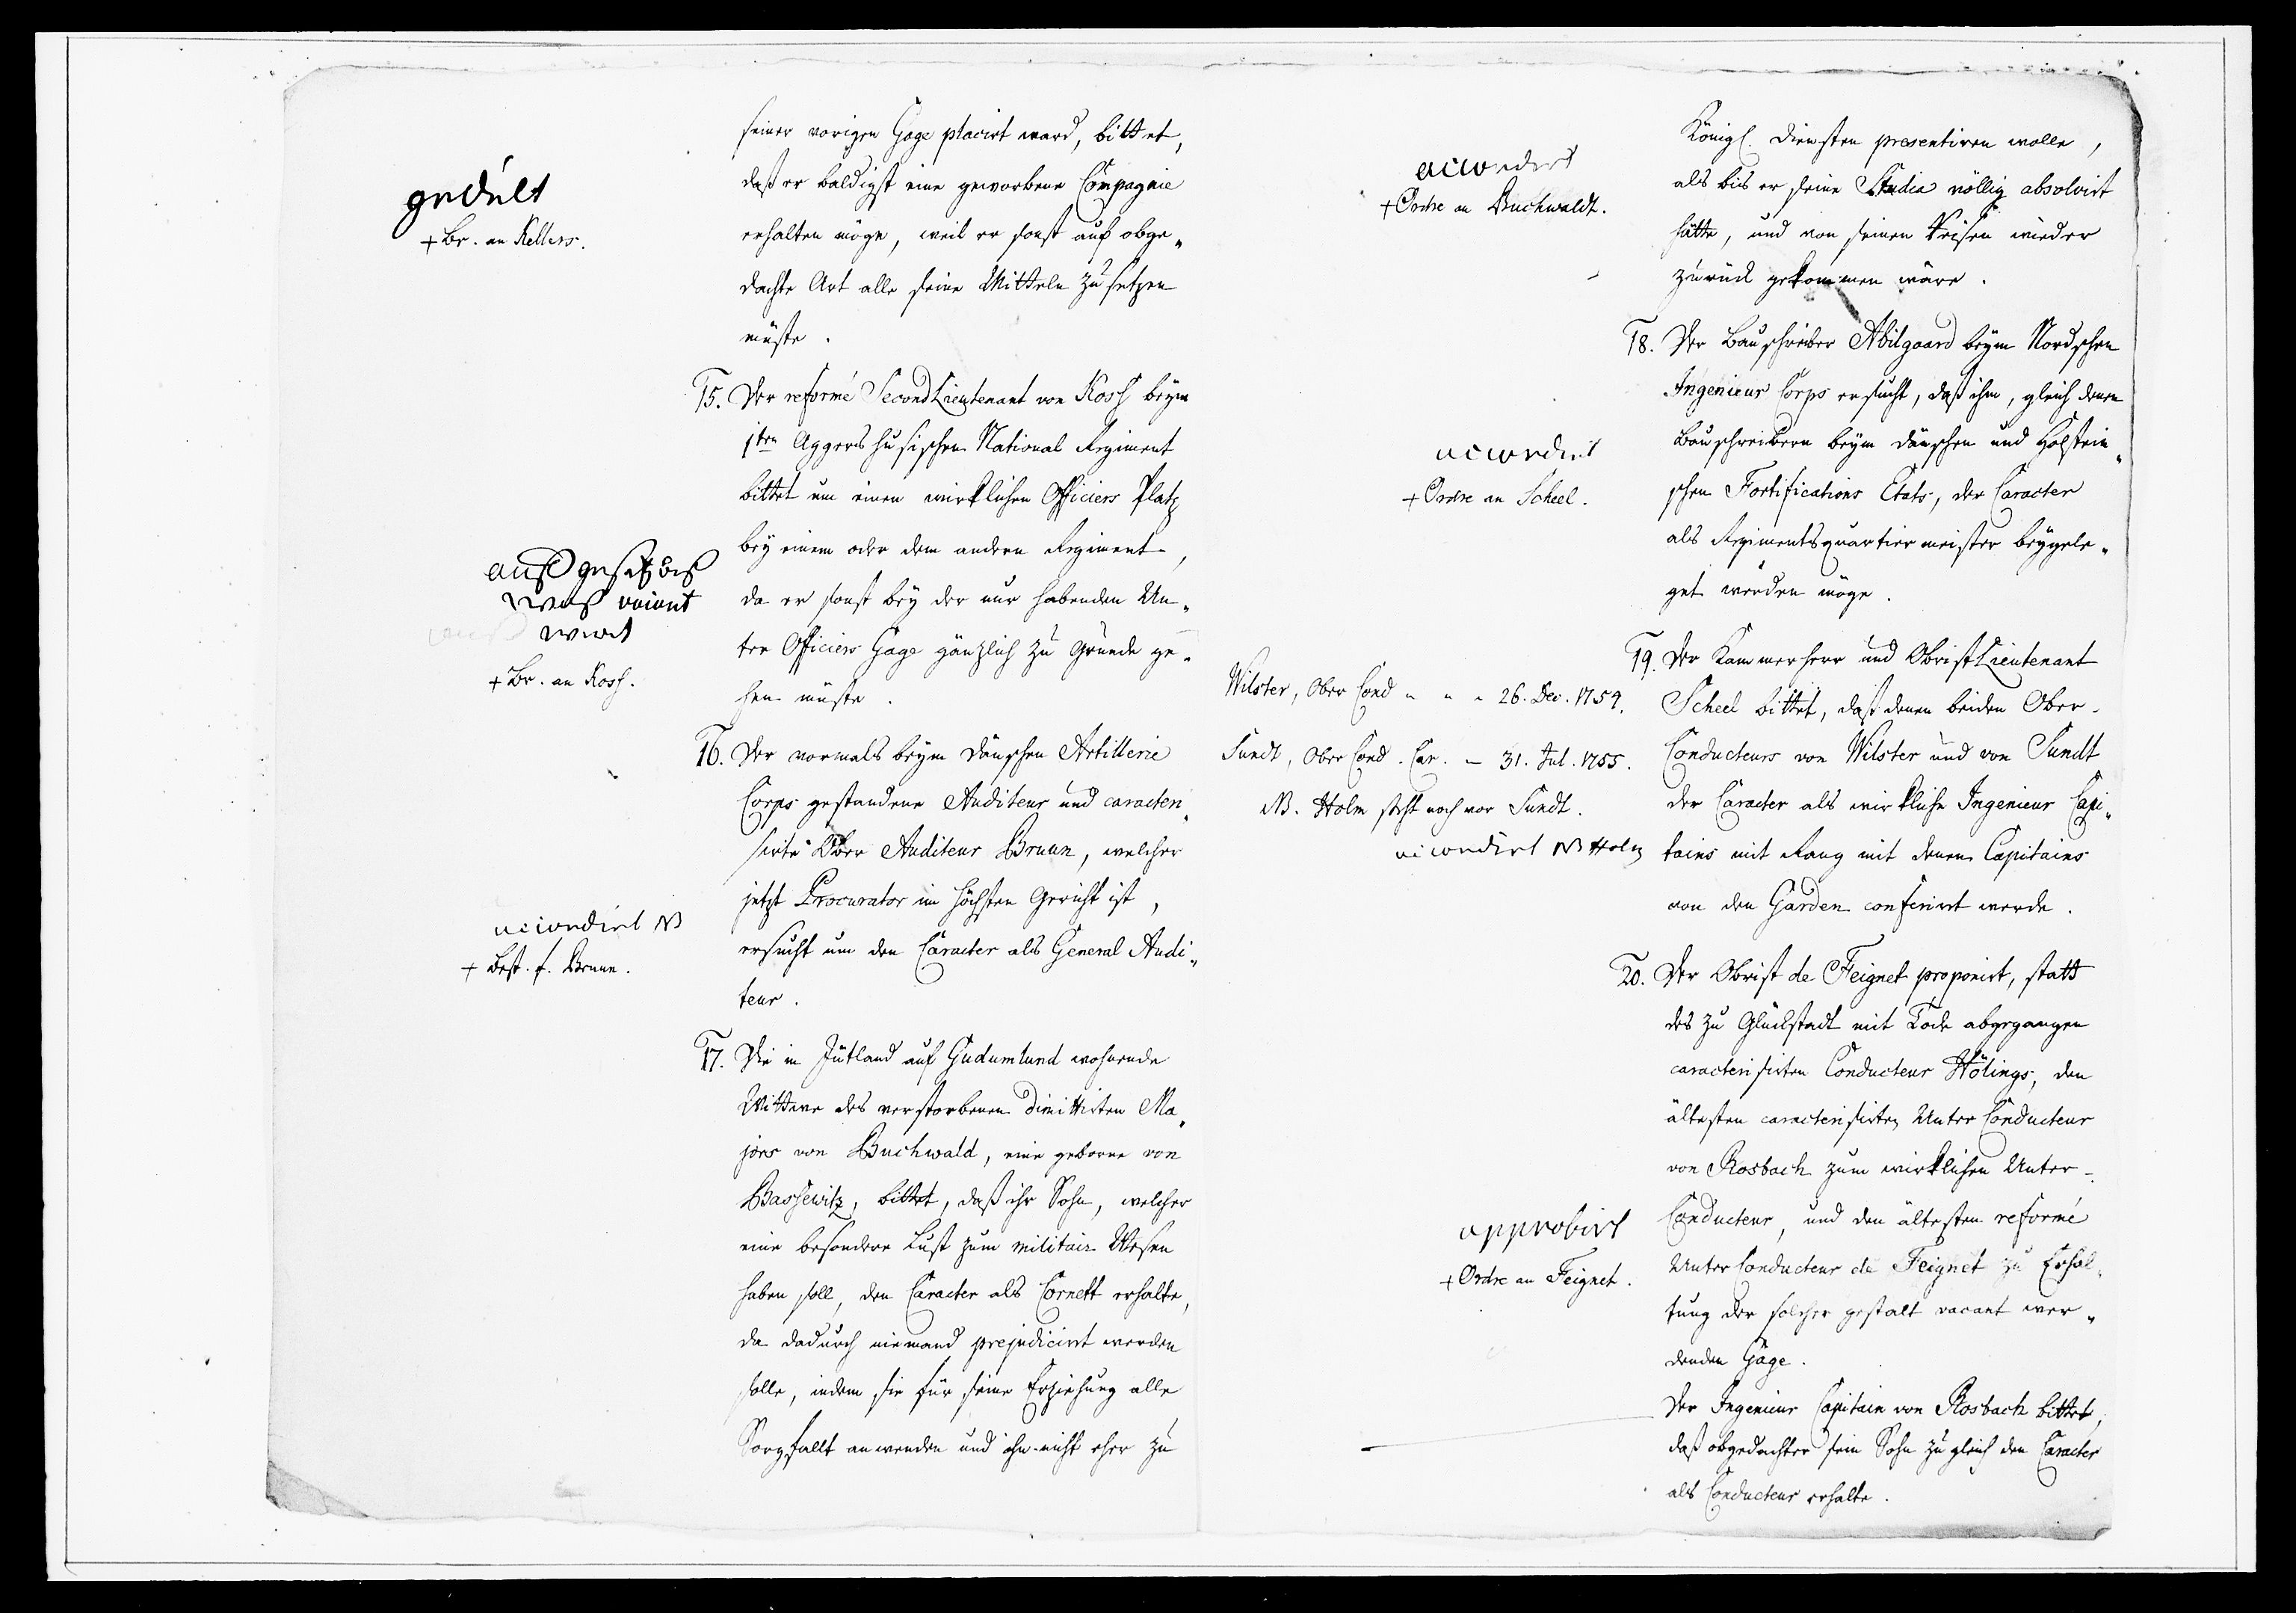 seiner vorigen Gage placirt ward, bittet,
daß er baldigst eine geworbene Compagnie
erhalten möge, weil er sonst auf obge„
dachte Art alle seine Mitteln zusetzen
müste.
gedult
+ Br. an Kellers.
15. Der reformé Second Lieutenant von Koss beym
1ten Aggershusischen National Regiment
bittet um einen wirklichen Officiers Platz
bey einem oder dem andern Regiment,
da er sonst bey der nur habenden Un„
ter Officiers Gage gänzlich zu Grunde ge„
hen müste.
auß gesetz biß
was vacant
wird
+ Br. an Koss.
16. Der vormals beym Dänschen Artillerie
Corps gestandene Auditeur und caracteri„
sirte Ober Auditeur Bruun, welcher
jetzt Procurator im Höchsten Gericht ist,
ersucht um den Caracter als General Audi„
teur.
accordirt NB
+ Best. f. Bruun.
17. Die in Jütland auf Gudumlund wohnende
Wittwe des verstorbenen dimittirten Ma„
jors von Buchwald, eine geborne von
Bassewitz, bittet, daß ihr Sohn, welcher
eine besondere Lust zum militair Wesen
haben soll, den Caracter als Cornett erhalte,
da dadurch niemand prejudicirt werden
solle, indem sie für seine Erziehung alle
Sorgfallt anwenden und ihn nicht eher zu
Königl. Diensten presentiren wolle,
als bis er seine Studia völlig absolvirt
hätte, und von seinen Reisen wieder
zurück gekommen wäre.
accordirt
+ Ordre an Buchwaldt.
18. Der Bauschreiber Abilgaard beym Nordschen
Ingenieur Corps ersucht, daß ihm, gleich denen
Bauschreibern beym Dänschen und Holstein„
schen Fortifications Etats, der Caracter
als Regimentsquartiermeister beygele„
get werden möge.
accordirt
+ Ordre an Scheel.
19. Der Kammerherr und Obrist Lieutenant
Scheel bittet, daß denen beiden Ober-
Conducteurs von Wilster und von Sundt
der Caracter als wirkliche Ingenieur Capi„
tains mit Rang mit denen Capitains
von den Garden conferirt werde.
Wilster, Ober Cond „ „ „ 26. Dec. 1754.
Sundt, Ober Cond. Car. – 31. Jul. 1755.
NB. Holm steht noch vor Sundt.
accordirt NB Holm
20. Der Obrist de Feignet proponirt, statt
des zu Glückstadt mit Tode abgegangen
caracterisirten Conducteur Hölings, den
ältesten caracterisirten Unter Conducteur
von Rosbach zum wirklichen Unter-
Conducteur, und den ältesten reformé
Unter Conducteur de Feignet zu Erhal„
tung der solcher gestalt vacant wer„
denden Gage.
approbirt
+ Ordre an Feignet.
Der Ingenieur Capitain von Rosbach bittet,
daß obgedachter sein Sohn zugleich den Caracter
als Conducteur erhalte.